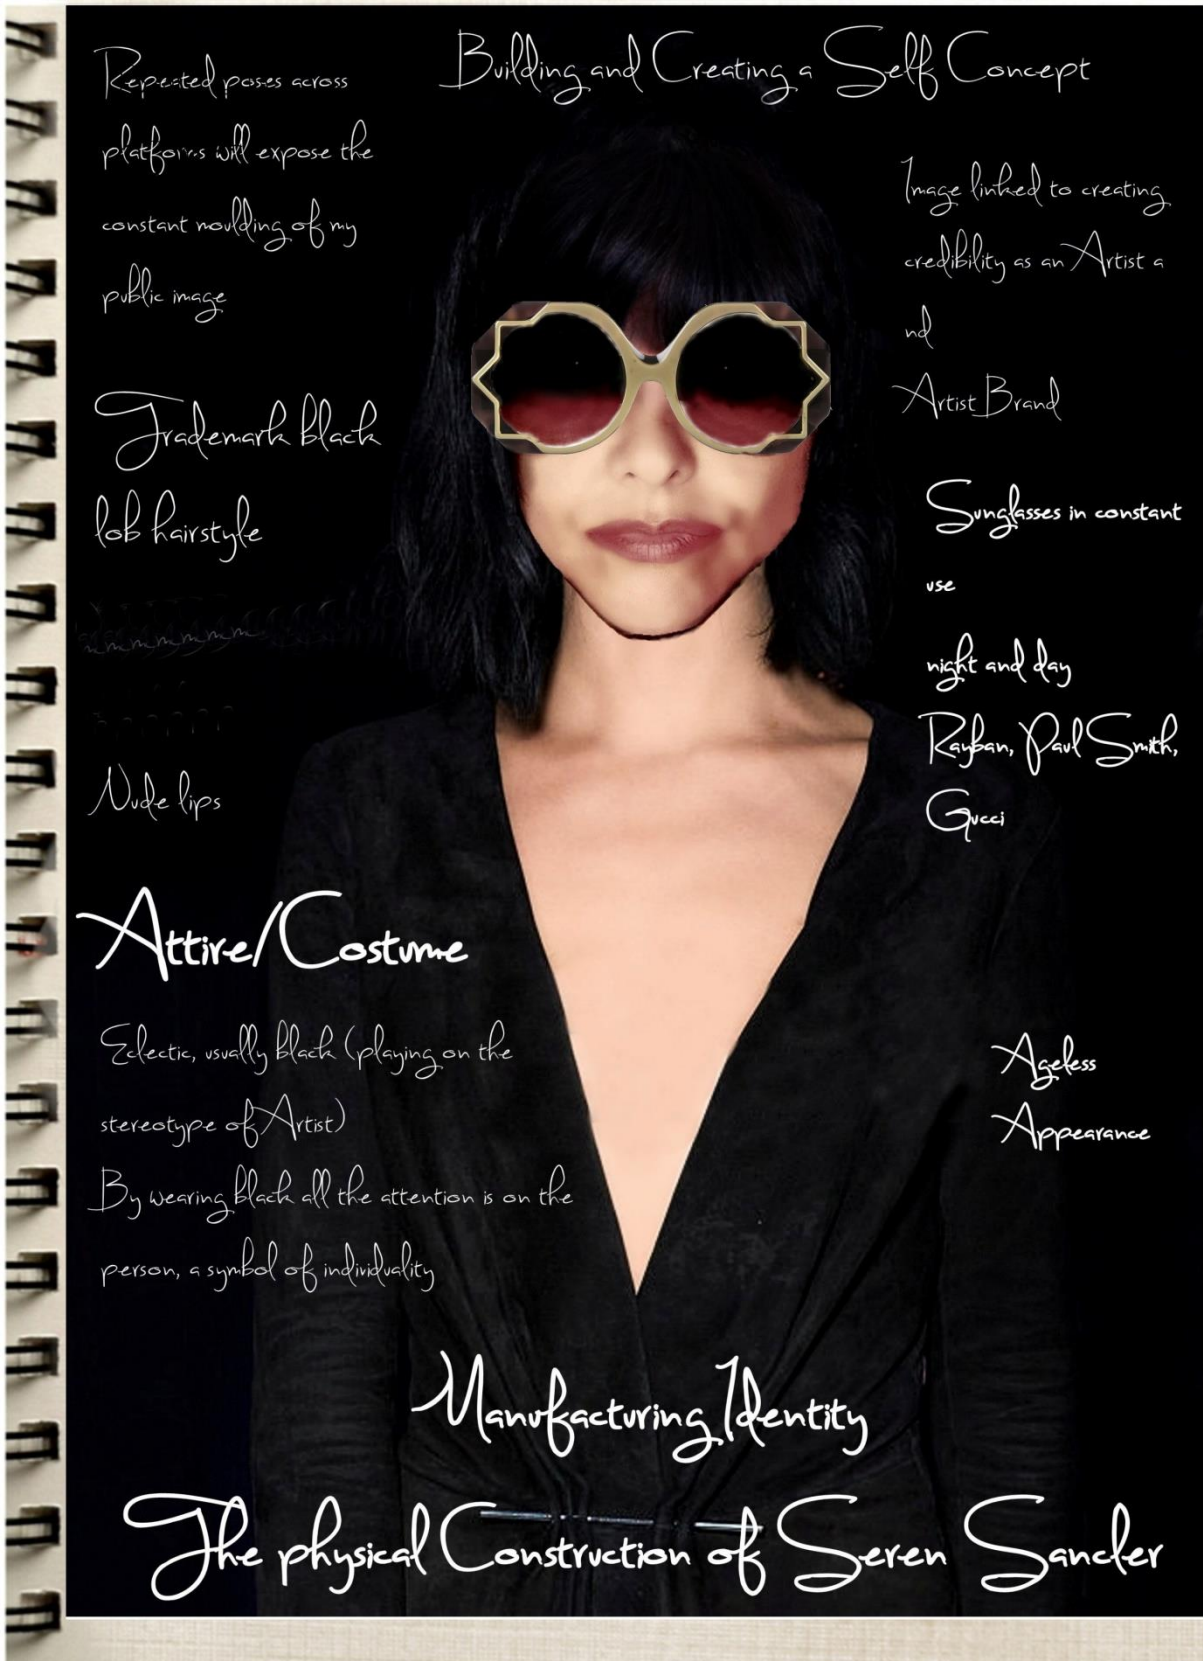 Building and Creating a Self Concept
Repeated poses across
platforms will expose the
constant moulding of my
public image
Trademark black
lob hairstyle
Nude lips
Image linked to creating
credibility as an Artist a
nd
Artist Brand
Sunglasses in constant
use
night and day
Rayban, Paul Smith,
Gucci
Attire/Costume
Eclectic, usually black (playing on the
stereotype of Artist)
By wearing black all the attention is on the
person, a symbol of individuality
Ageless
Appearance
Manufacturing Identity
The physical Construction of Seren Sancler